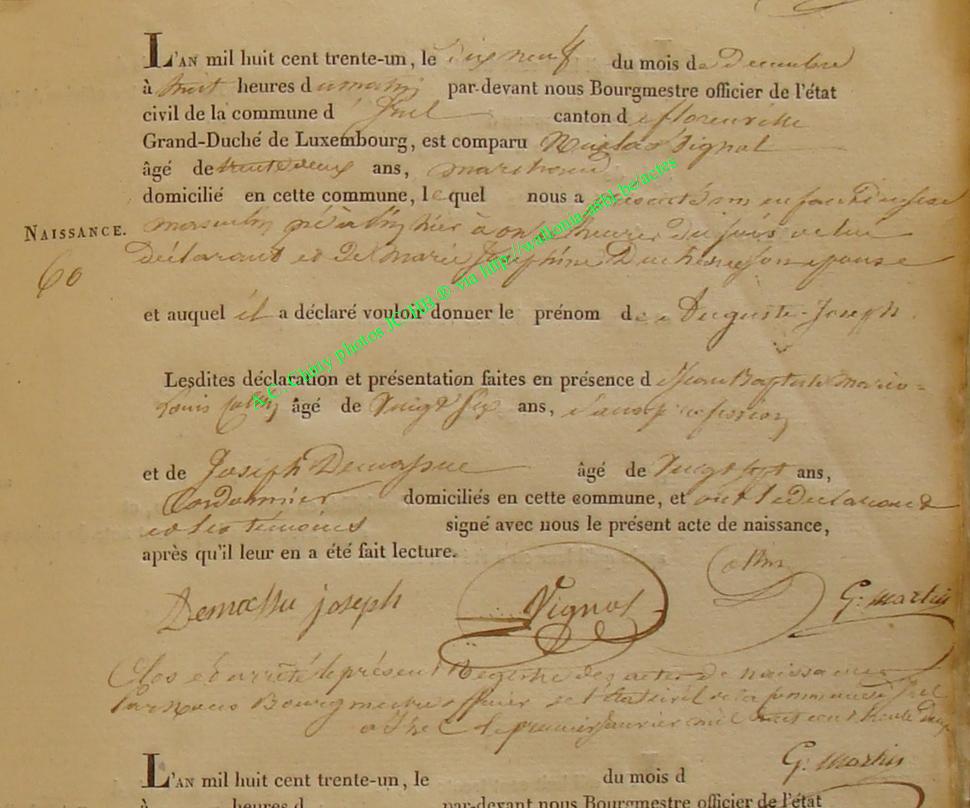 L'AN mil huit cent trente-un, le dix neuf du mois de Decembre
à huit heures du matin par-devant nous Bourgmestre officier de l'état
civil de la commune d'Izel canton de florenville
Grand-Duché de Luxembourg, est comparu Nicolas Vignol
âgé de trente deux ans, marchand
domicilié en cette commune, lequel nous a présenté un enfant du sexe
NAISSANCE. masculin né à Izel hier à onze heures du soir de lui
60 Déclarant et de Marie Josephine Duchene son epouse
et auquel il a déclaré vouloir donner le prénom de Auguste-Joseph.
Lesdites déclaration et présentation faites en présence de Jean Baptiste
Louis âgé de Vingt Six ans, sans profession
et de Joseph Demasse âgé de Vingt Sept ans,
Cordonnier domiciliés en cette commune, et ont le declarant
et les témoins signé avec nous le présent acte de naissance,
après qu'il leur en a été fait lecture.
Demasse joseph Vignol G. Martin
Clos et arrêté le présent Registre des actes de naissance
Par Nous Bourgmestre officier de l'état civil de la Commune d'Izel
a Izel le premier Janvier mil huit cent trente deux
G. Martin
L'AN mil huit cent trente-un, le du mois d
à heures d par-devant nous Bourgmestre officier de l'état
A.E. Chiny photos JCHHB ® via http://wallonia-asbl.be/actes